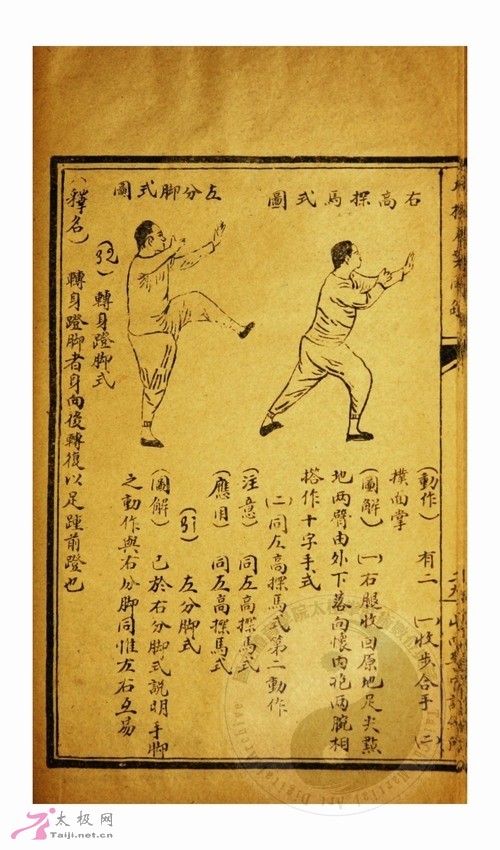 右高探馬式圖
(動作) 有二 (一)收步合手 (二)
撲面掌
(圖解) (一)右腿收回原地足尖點
地两臂由外下落向懷内抱两腕相
搭作十字手式
(二)同左高探馬式第二動作
(注意) 同左高探馬式
(應用) 同左高探馬式
左分脚式
左分脚式圖
(圖解) 已於右分脚式說明手脚
之動作與右分脚同惟左右互易
轉身蹬脚式
(釋名) 轉身蹬脚者身向後轉復以足踵前蹬也
太极网
Taiji.net.cn